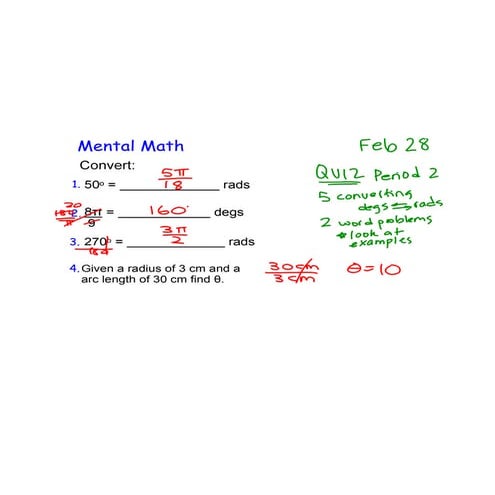 Mental Math
Feb 28
Convert:
QUIZ Period 2
1. 50° = 5π/18 rads
5 converting
degs → rads
20
180/π
2. 8π/9 = 160° degs
2 word problems
* look at
examples
3. 270° = 3π/2 rads
180
4. Given a radius of 3 cm and a
arc length of 30 cm find θ.
30 cm/3 cm θ = 10